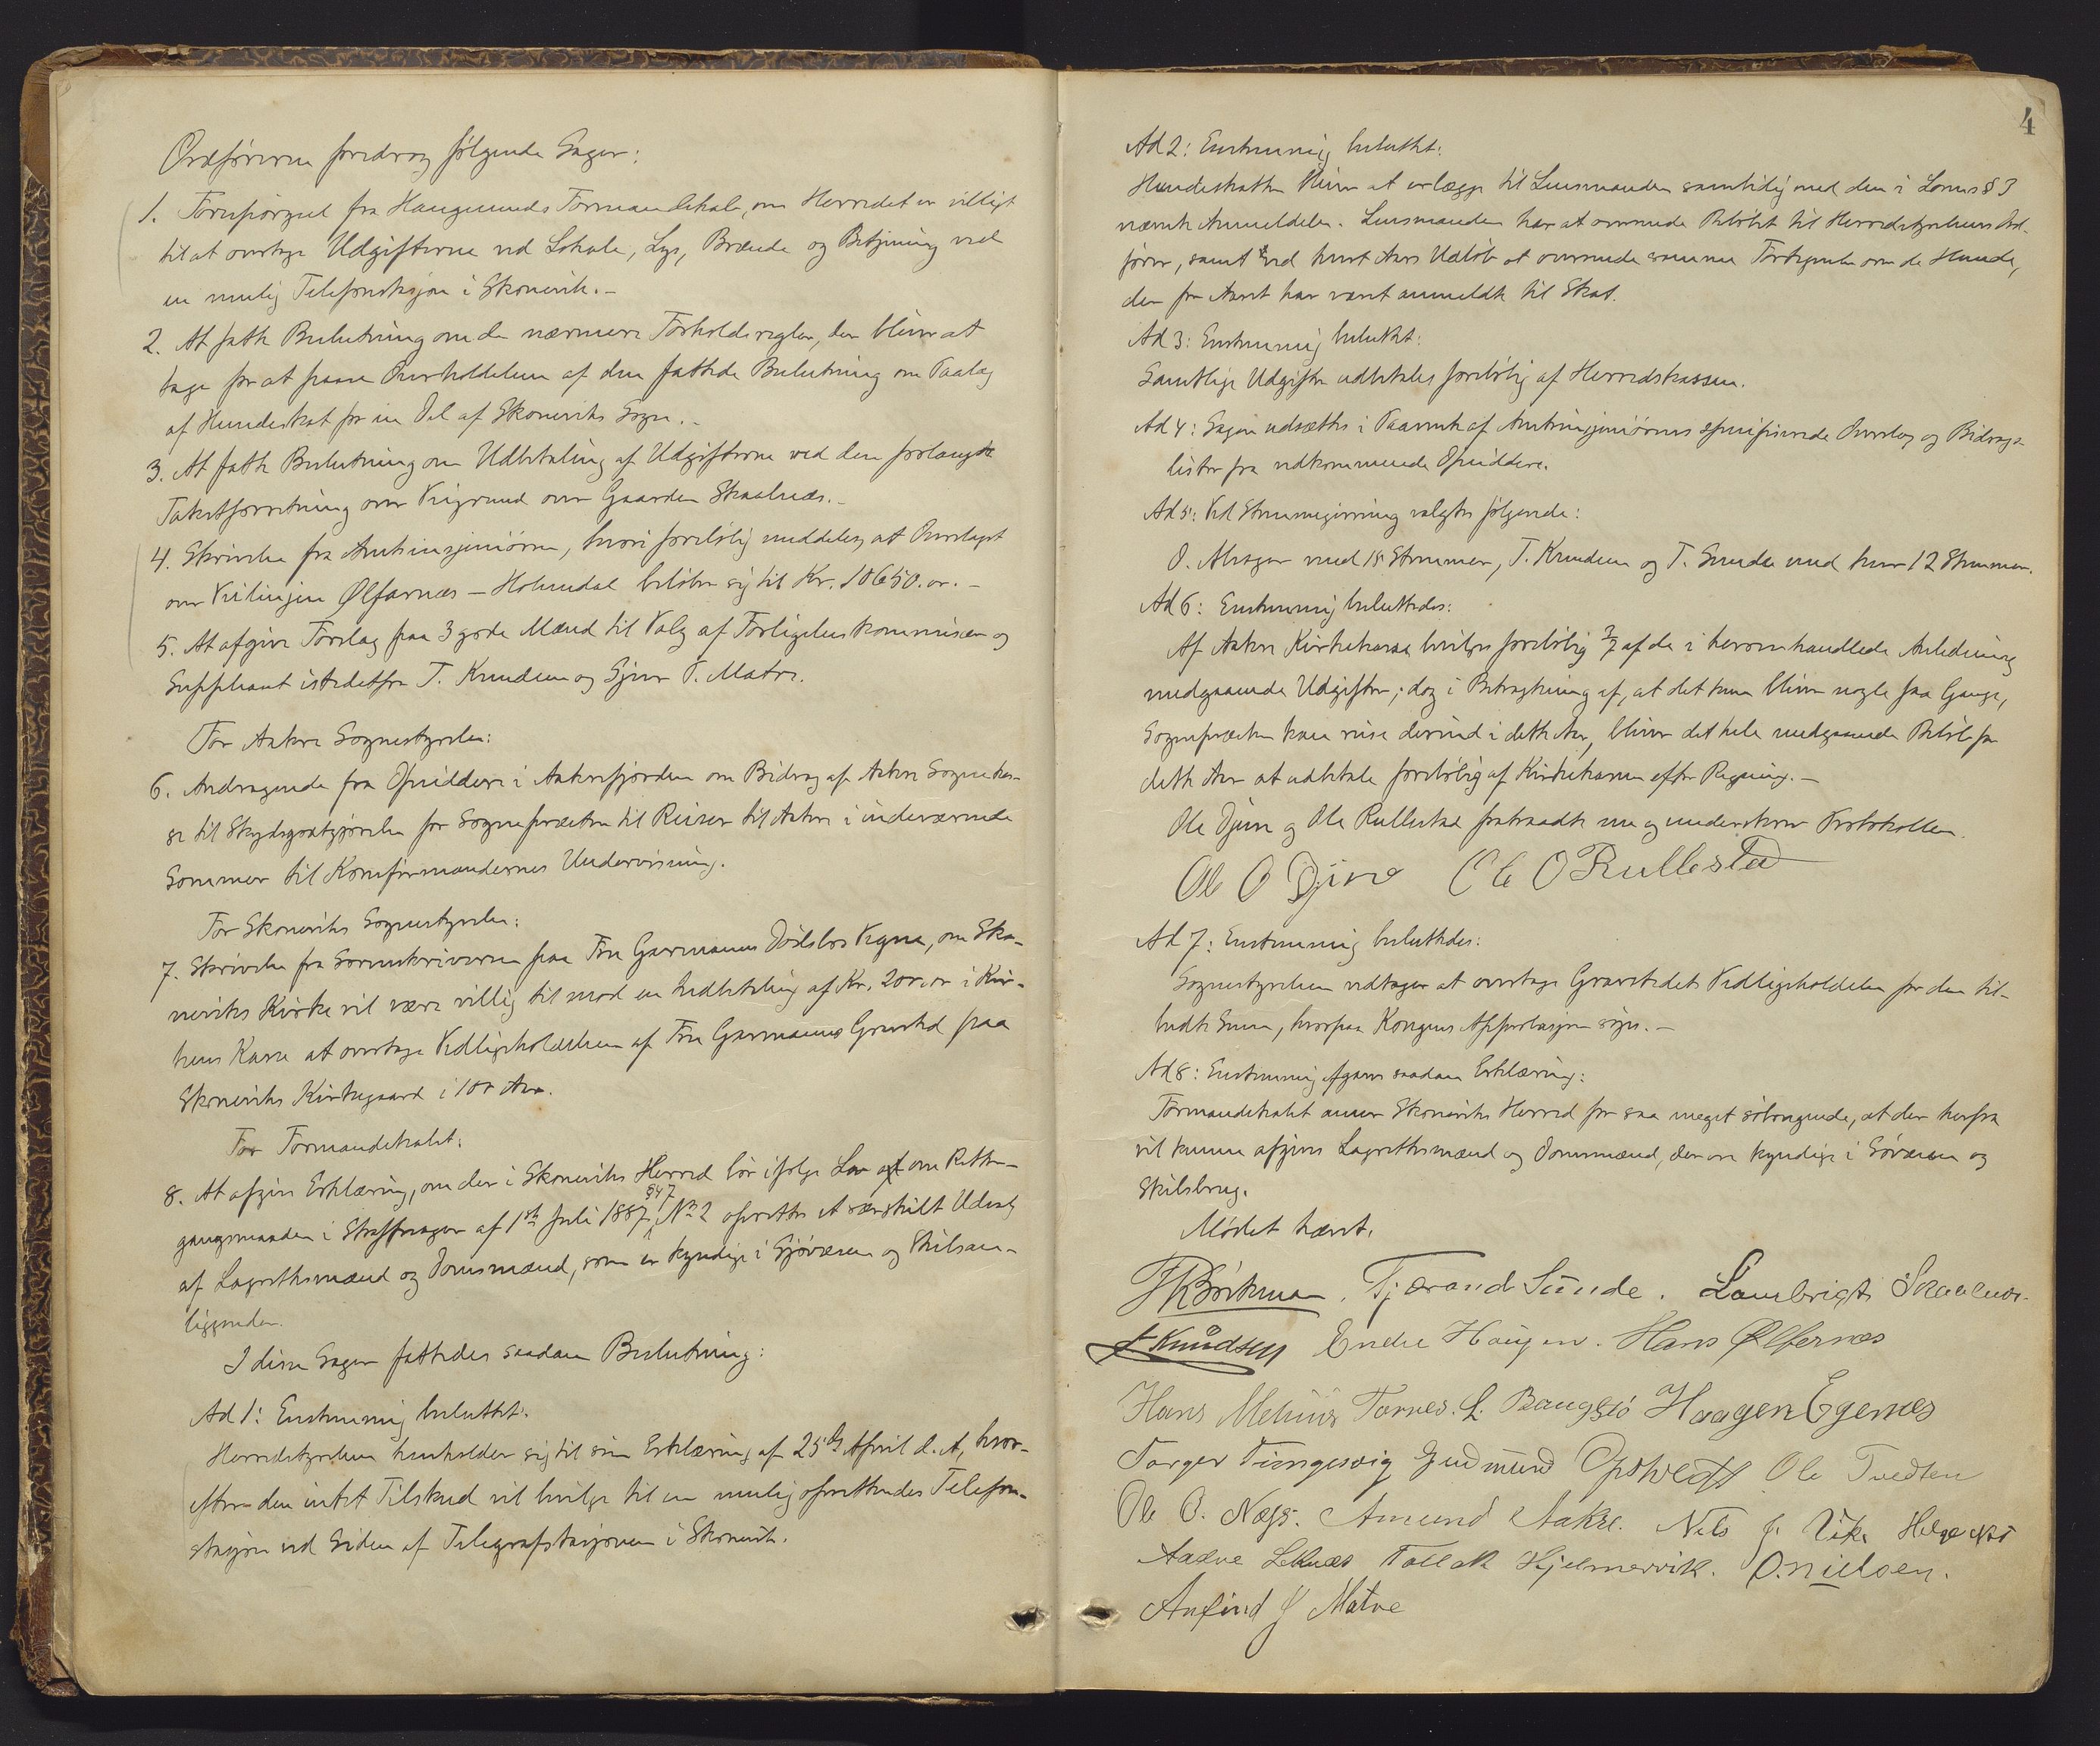 Ordføreren foredrog følgende Sager:
1. Forespørgsel fra Haugesunds Formandskab, om Herredet er villigt
til at overtage Udgifterne ved Lokale, Lys, Brænde og Betjening ved
en mulig Telefonstasjon i Skonevik. -
2. At fatte Beslutning om de nærmere Forholdsregler, der bliver at
tage for at paase Overholdelsen af den fattede Beslutning om Paalæg
af Hundeskat for en Del af Skoneviks Sogn. -
3. At fatte Beslutning om Udbetaling af Udgifterne ved den forlangte
Takstforretning over Veigrund over Gaarden Skaalnes. -
4. Skrivelse fra Amtsinsjeniøren, hvori foreløbig meddeles, at Overslaget
over Veilinjen Ølfarnæs - Holmedal beløber sig til Kr. 10650.oo. -
5. At afgive Forslag paa 3 gode Mænd til Valg af Forligelseskommissær og
Suppleant istedetfor T. Knudsen og Sjur T. Matre.
For Aakre Sognestyrelse:
6. Andragende fra Opsiddere i Aakrefjorden om Bidrag af Aakre Sognekas-
se til Skydsgodtgjørelse for Sognepræsten til Reiser til Aakre i indeværende
Sommer til Konfirmandernes Undervisning.
For Skoneviks Sognestyrelse:
7. Skrivelse fra Sorenskriveren paa Fru Garmanns Dødsbos Vegne, om Sko-
neviks Kirke vil være villig til mod en Indbetaling af Kr. 200,oo i Kir-
kens Kasse at overtage Vedligeholdelsen af Fru Garmanns Gravsted paa
Skoneviks Kirkegaard i 100 Aar.
For Formandskabet:
8. At afgive Erklæring, om der i Skoneviks Herred bør ifølge Lov om Retter-
gangsmaaden i Straffesager af 1ste Juli 1887 §47 No 2 oprettes et særskilt Udvalg
af Lagrettesmænd og Domsmænd, som er kyndige i Sjøvæsen og Skibsan-
liggender.
I disse Sager fattedes saadan Beslutning:
Ad 1: Enstemmig besluttet:
Herredstyrelsen henholder sig til sin Erklæring af 25de April d. A, hvor-
efter den intet Tilskud vil bevilge til en mulig oprettendes Telefon-
stasjon ved Siden af Telegrafstasjonen i Skonevik.
4
Ad 2: Enstemmig besluttet:
Hundeskatten bliver at erlægge til Lensmanden samtidig med den i Lovens § 3
nævnte Anmeldelse. Lensmanden har at oversende Beløbet til Herredstyrelsens Ord-
fører, samt ved hvert Aars Udløb at oversende samme Fortegnelse om de Hunde,
der for Aaret har været anmeldt til Skat.
Ad 3: Enstemmig besluttet:
Samtlige Udgifter udbetales foreløbig af Herredskassen.
Ad 4: Sagen udsættes i Paavente af Amtsinsjeniørens spesifiserede Overslag og Bidrags-
lister fra vedkommende Opsiddere.
Ad 5: Ved Stemmegivning valgtes følgende:
O. Alsager med 15 Stemmer, T. Knudsen og T. Sunde med hver 12 Stemmer.
Ad 6: Enstemmig besluttedes:
Af Aakre Kirkekasse bevilges foreløbig 2/7 af de i heromhandlede Anledning
medgaaende Udgifter; dog i Betragtning af, at det kun bliver nogle faa Gange,
Sognepræsten kan reise derind i dette Aar, bliver det hele medgaaende Beløb for
dette Aar at udbetale foreløbig af Kirkekassen efter Regning. -
Ole Djuve og Ole Rullestad fratraadte nu og underskrev Protokollen.
Ole O Djuve Ole O Rullestad
Ad 7: Enstemmig besluttedes:
Sognestyrelsen vedtager at overtage Gravstedets Vedligeholdelse for den til-
budte Sum, hvorpaa Kongens Approbasjon søges. -
Ad 8: Enstemmig afgaves saadan Erklæring:
Formandskabet anser Skoneviks Herred for saa meget søbrugende, at der herfra
vil kunne afgives Lagrettesmænd og Domsmænd, der ere kyndige i Søvæsen og
Skibsbrug.
Mødet hævet.
Tjærand Sunde. Lambrigt Skaalnes.
T Knudsen Endre Haugen. Hans Ølfernes
Hans Mehus Tornes. L. Baugstø Haagen Egenes
Torger Tungesvig Gudmund Opstvedt Ole Tvedten
Ole O. Næss. Amund Aakre. Nels J. Vike Helge
Aadne Leknæs Tollak Hjelmervik. O. Nielsen.
Anfind J Matre